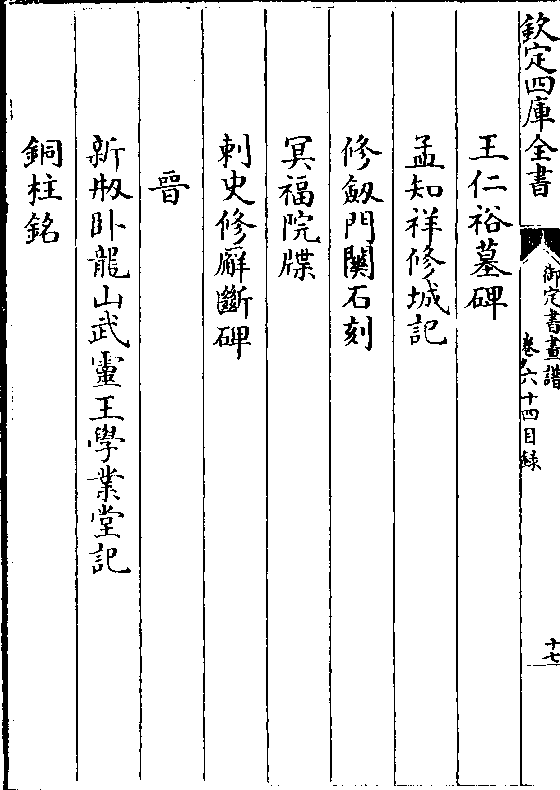 欽定四庫全書
御定書畫譜
卷六十四目録
十七
王仁裕墓碑
孟知祥修城記
修劔門關石刻
冥福院牒
刺史修廨斷碑
晉
新牧卧龍山武靈王學業堂記
銅柱銘